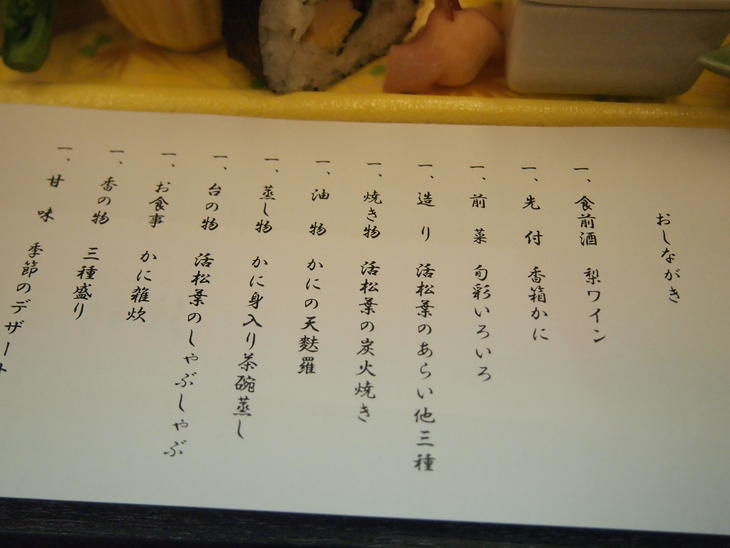 おしながき
一、食前酒 梨ワイン
一、先付 香箱かに
一、前菜 旬彩いろいろ
一、造り 活松葉のあらい他三種
一、焼き物 活松葉の炭火焼き
一、油物 かにの天麩羅
一、蒸し物 かに身入り茶碗蒸し
一、台の物 活松葉のしゃぶしゃぶ
一、お食事 かに雑炊
一、香の物 三種盛り
一、甘味 季節のデザート